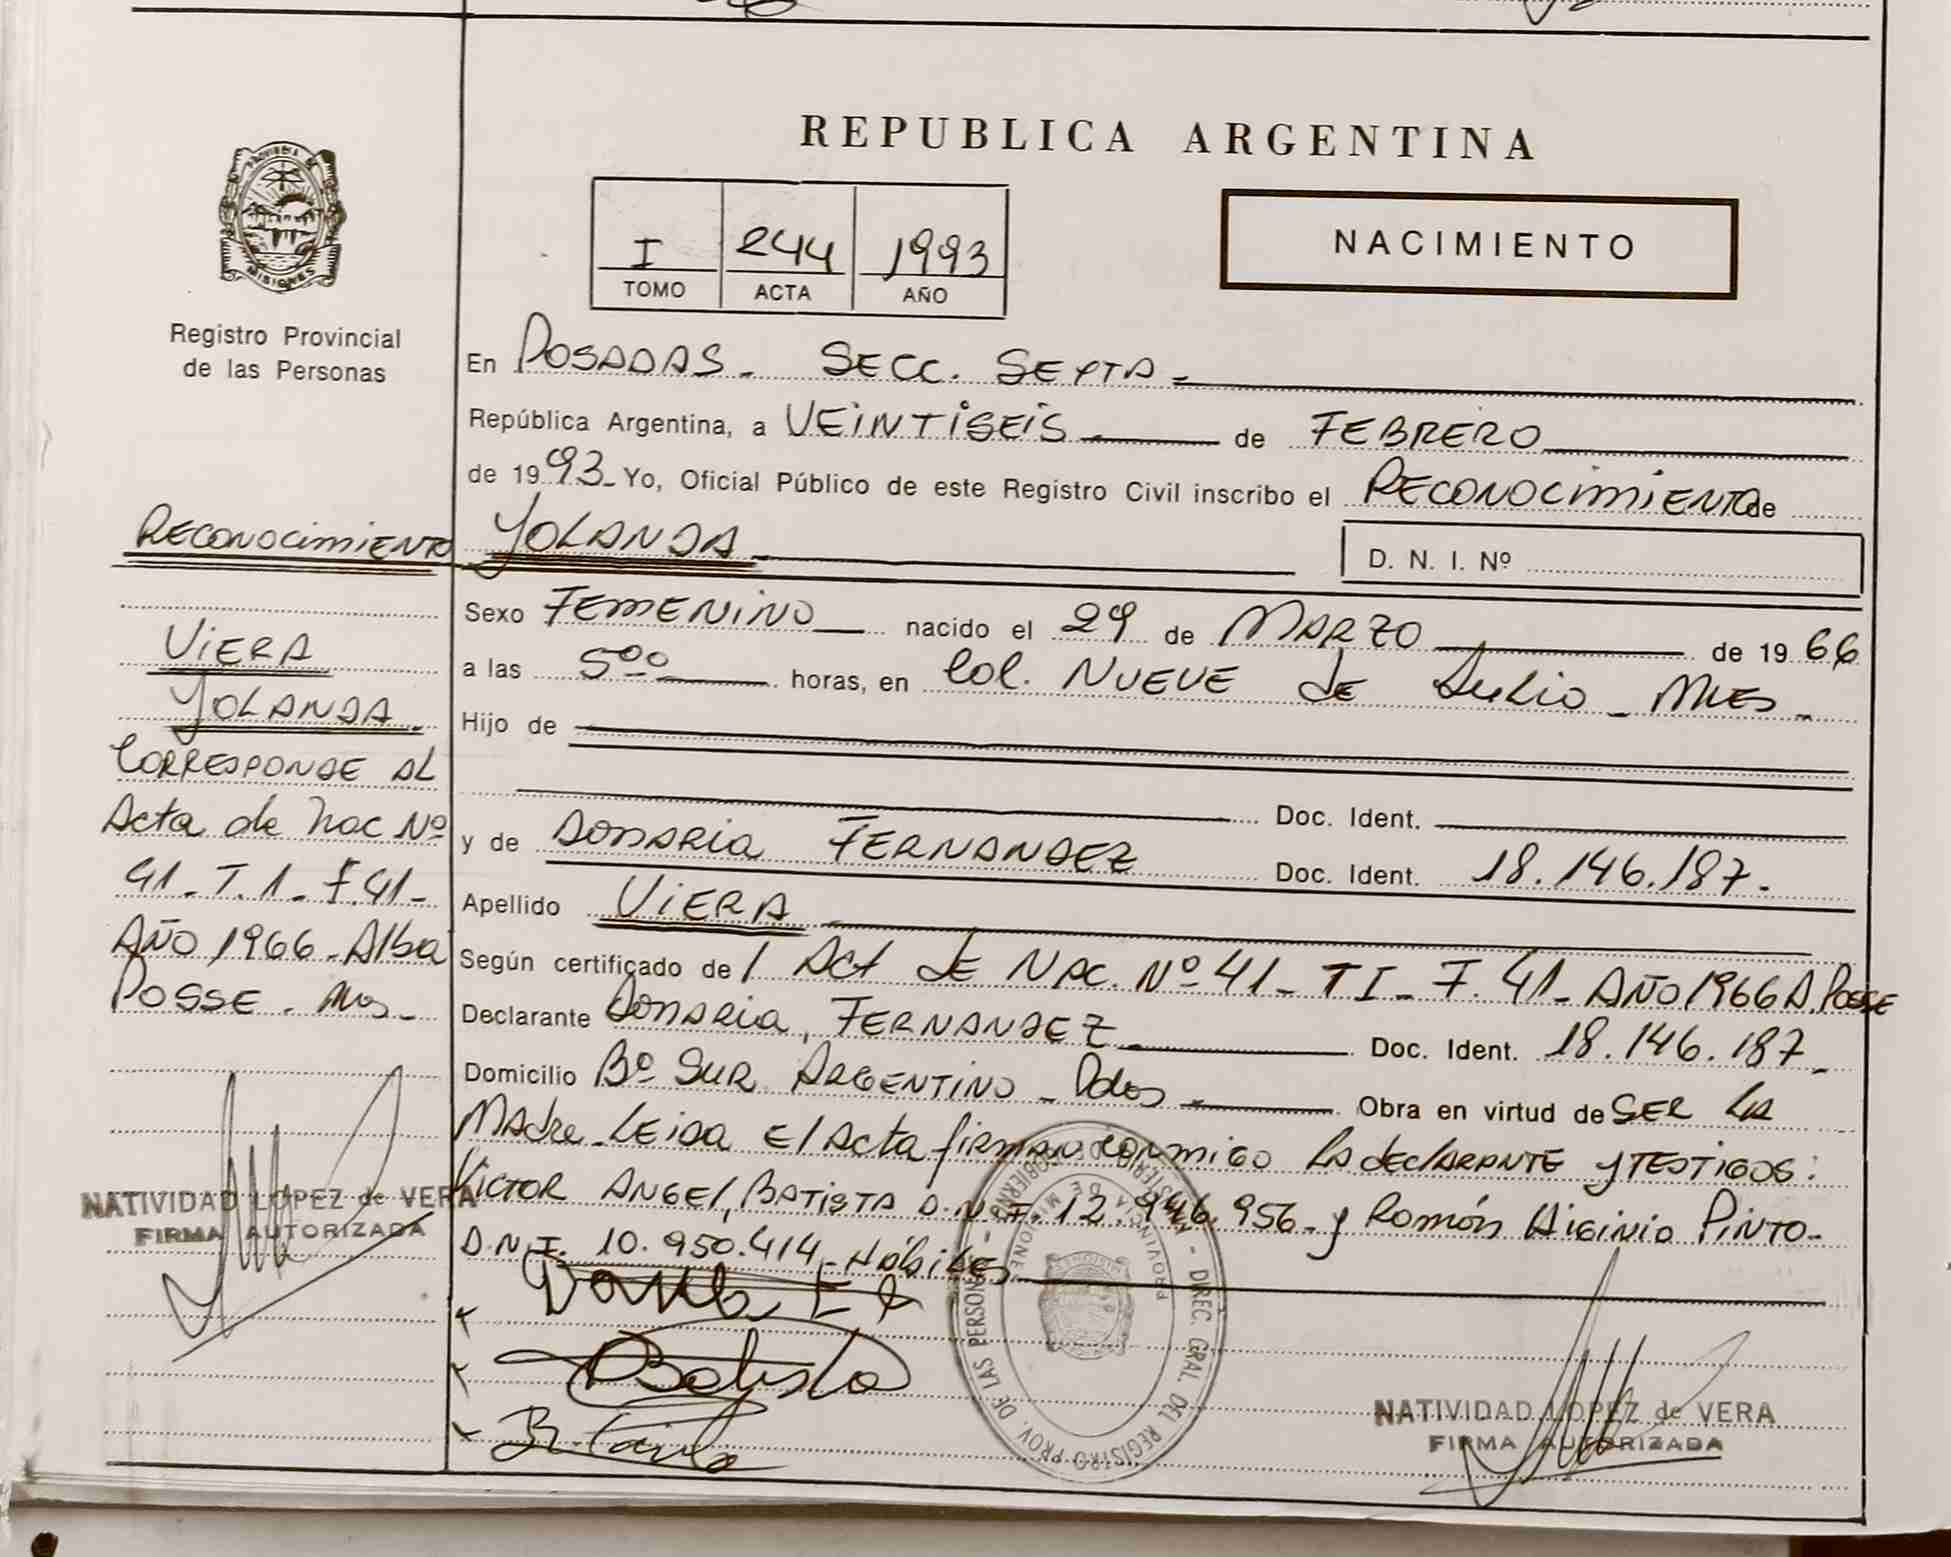 REPUBLICA ARGENTINA
PROVINCIA DE
MISIONES
Registro Provincial
de las Personas
I 244 1993
TOMO ACTA AÑO
NACIMIENTO
En POSADAS - SECC. SEXTA -
República Argentina, a VEINTISEIS - de FEBRERO
de 1993 - Yo, Oficial Público de este Registro Civil inscribo el RECONOCIMIENTO de
YOLANDA -
D. N. I. Nº
Sexo FEMENINO nacido el 29 de MARZO de 1966
a las 5⁰⁰ horas, en Col. NUEVE de Julio - Mnes -
Hijo de
Doc. Ident.
y de DONARIA FERNANDEZ Doc. Ident. 18.146.187.-
Apellido VIERA
Según certificado de l Act de NAC. Nº 41 - T I - F. 41 - AÑO 1966 A. POSSE
Declarante Donaria, FERNANDEZ - Doc. Ident. 18.146.187 -
Domicilio Bº SUR ARGENTINO - Pdas - Obra en virtud de SER LA
Madre - Leida El Acta firman conmigo LA declARANTE y TESTIGOS:
VICTOR ANGEL, BATISTA D.N.I. 12.946.956 - y Román Higinio PINTO -
D.N.I. 10.950.414 - Hábiles
RECONOCIMIENTO
VIERA
YOLANDA -
CORRESPONDE AL
Acta de Nac Nº
41 - T. 1 - F. 41 -
AÑO 1966 - Alba
POSSE - Mns -
NATIVIDAD LOPEZ de VERA
FIRMA AUTORIZADA
Batista
DIREC. GRAL. DEL REGISTRO PROV. DE LAS PERSONAS
MINISTERIO DE GOBIERNO
PROVINCIA DE MISIONES
NATIVIDAD LOPEZ de VERA
FIRMA AUTORIZADA